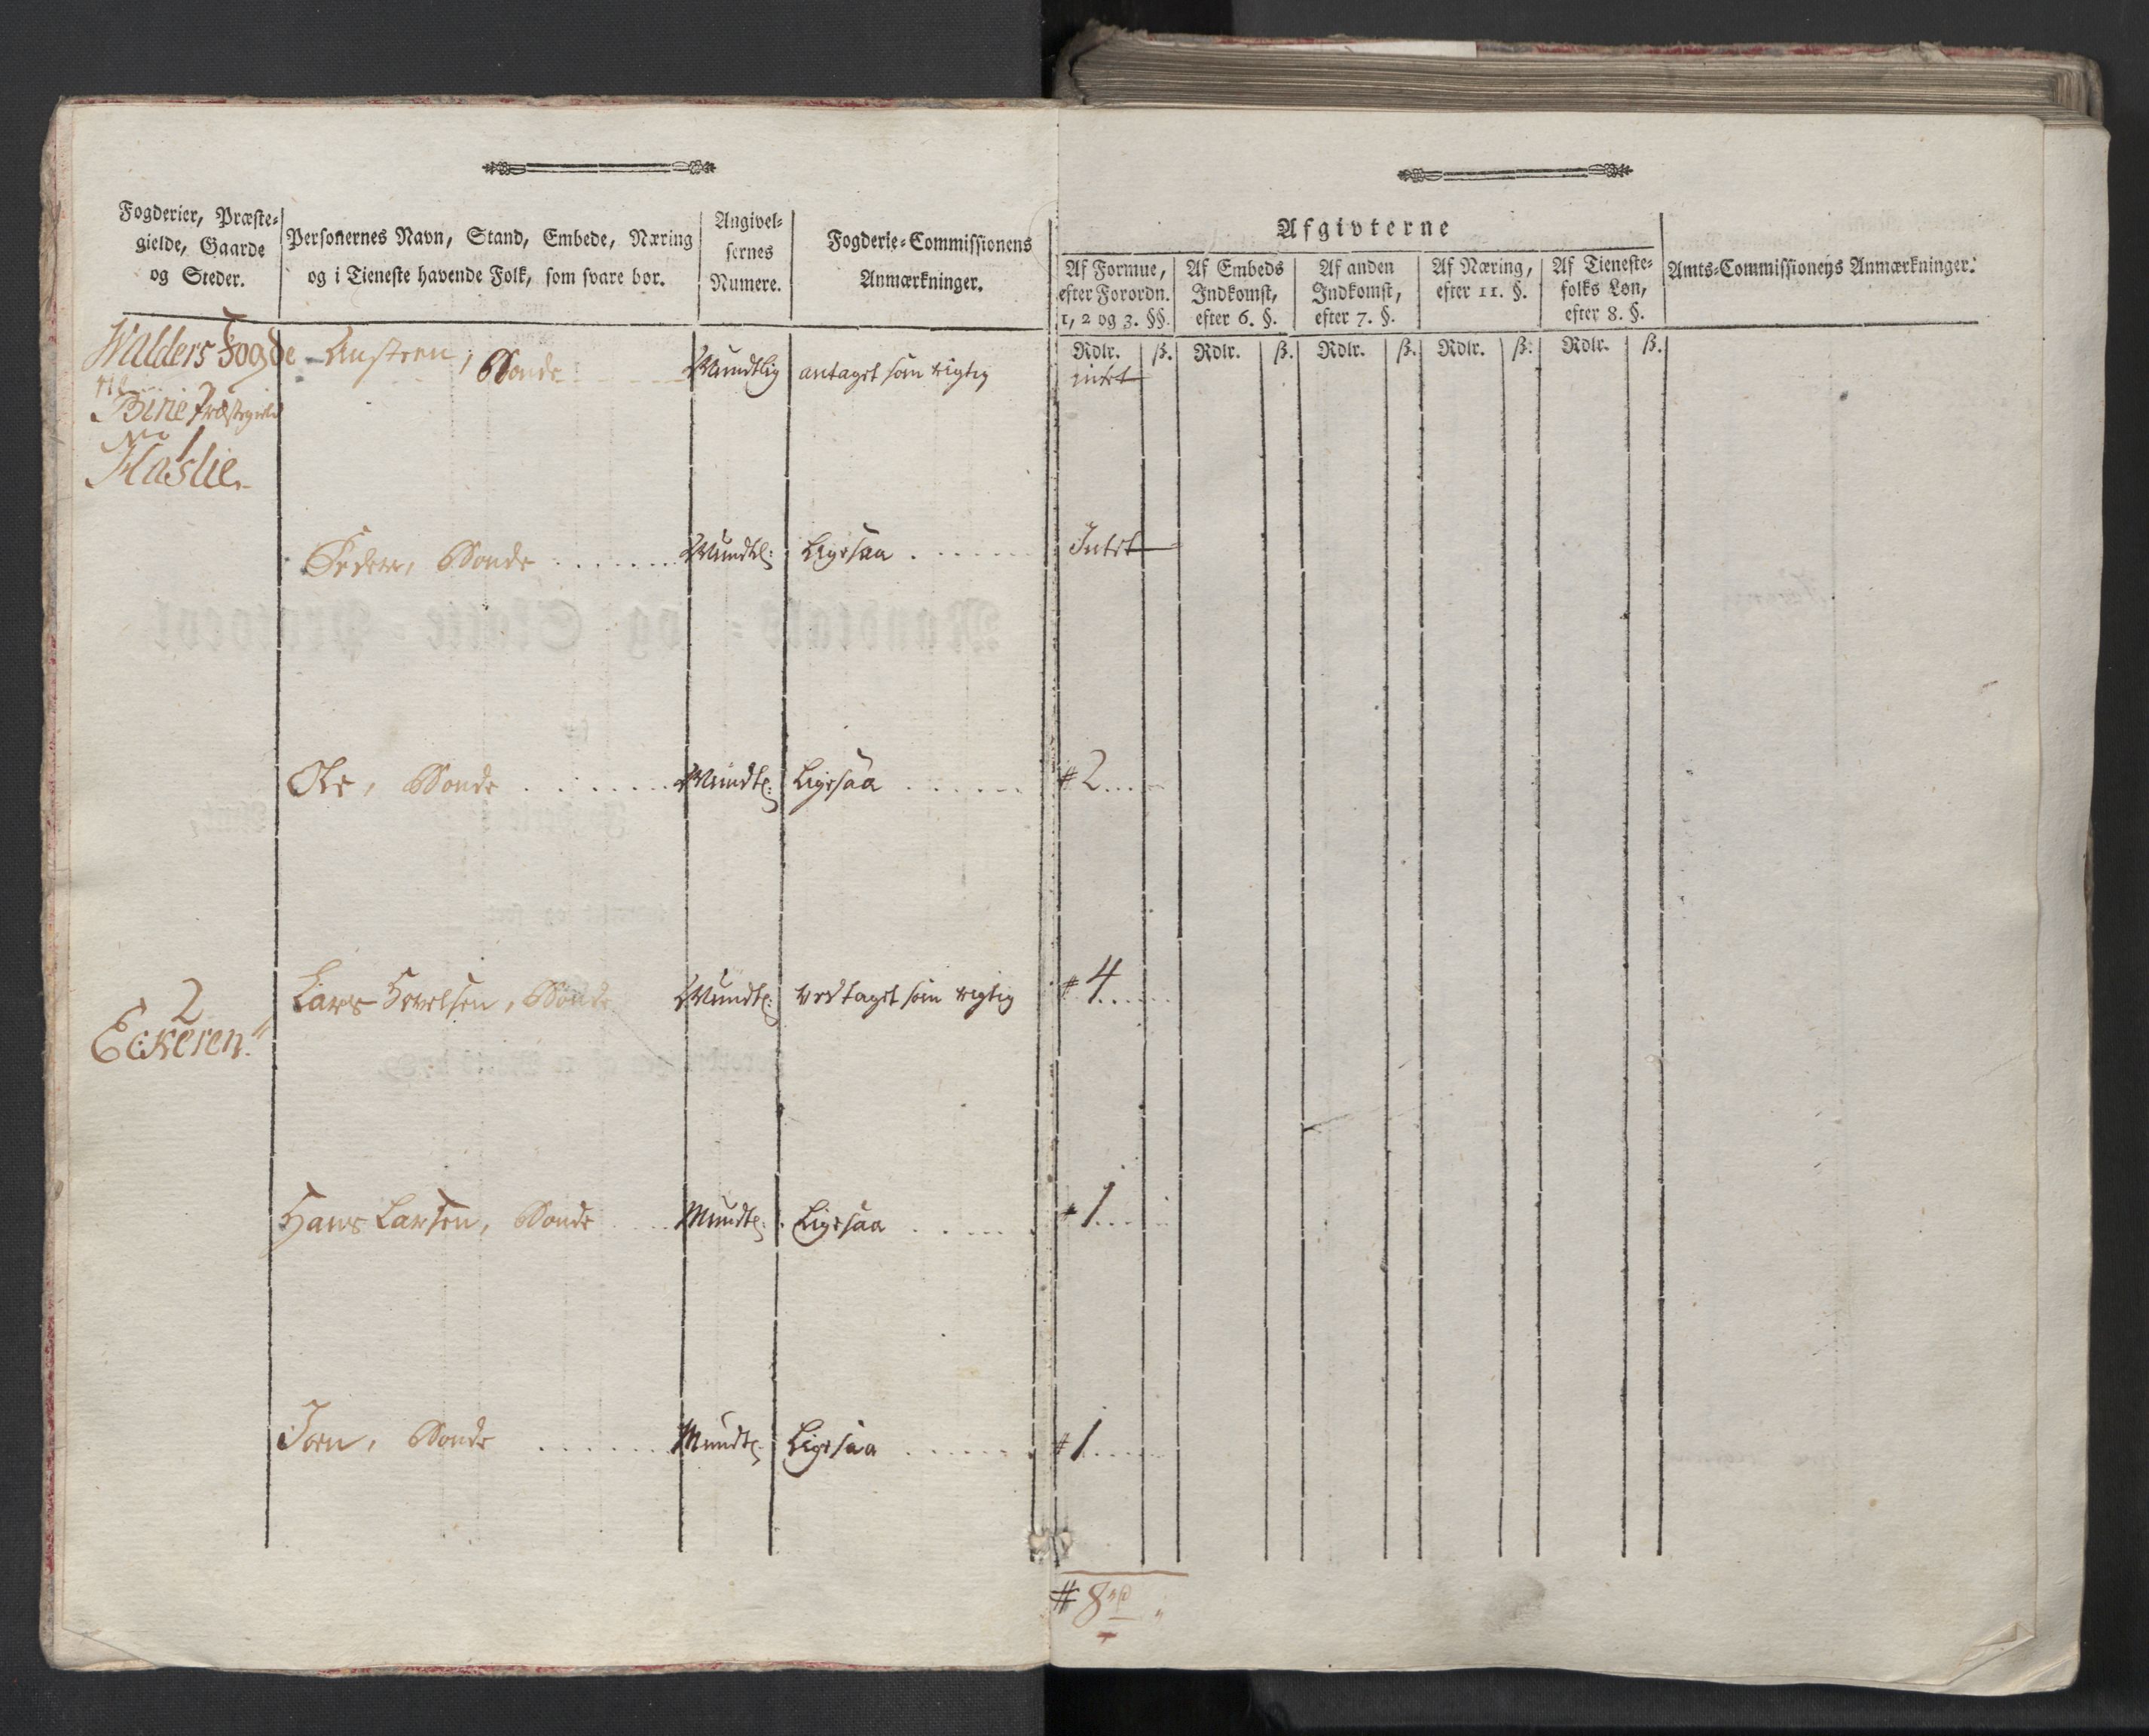 Fogderier, Præste-
gielde, Gaarde
og Steder.
Personernes Navn, Stand, Embede, Næring
og i Tieneste havende Folk, som svare bør.
Angivel-
sernes
Numere.
Fogderie-Commissionens
Anmærkninger.
Afgivterne
Af Formue,
efter Forordn.
1, 2 og 3. §§.
Af Embeds
Indkomst,
efter 6. §.
Af anden
Indkomst,
efter 7. §.
Af Næring,
efter 11. §.
Af Tieneste-
folks Løn,
efter 8. §.
Amts-Commissionens Anmærkninger.
Rdlr. ß. Rdlr. ß. Rdlr. ß. Rdlr. ß. Rdlr. ß.
Walders Fogde
Præstegield
No 1
Haslie.
Austeen, Bonde Mundtlig antaget som rigtig intet
Peder, Bonde Mundtl: Ligesaa Intet
Ole, Bonde Mundtl: Ligesaa # 2
2
Eckeren.
Lars Bonde Mundtl: vedtaget som rigtig # 4
Hans Larsen, Bonde Mundtl: Ligesaa # 1
Joen, Bonde Mundtl: Ligesaa # 1
# 8